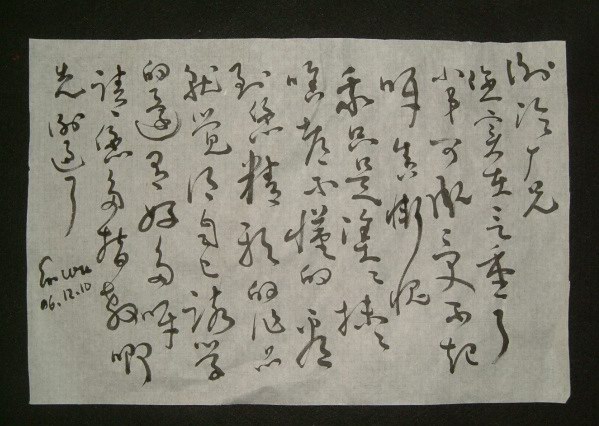 谢兄
您实在言重了
小弟可承受不起
呀 惭愧
我只是涂々抹々
啥都不懂的 看
到您精致的作品
就觉得自己该学
的还有好多呀
请您多指教啊
先谢过了
06.12.10